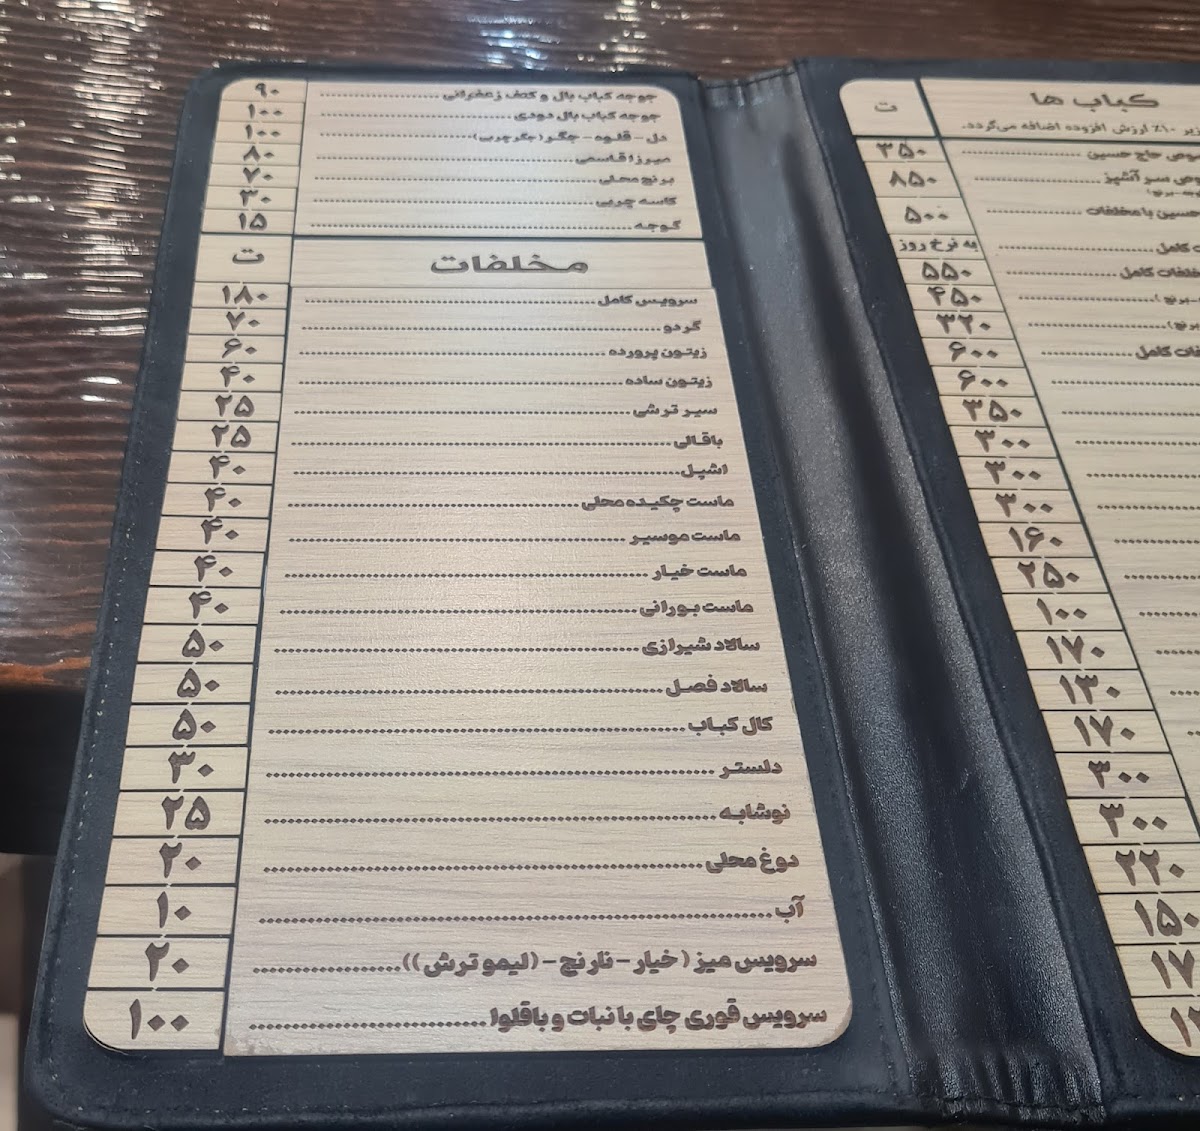 کباب ها ت
زیر ۱۰٪ ارزش افزوده اضافه می‌گردد.
حاج حسین ۳۵۰
سر آشپز ۸۵۰
برنج)
حسین با مخلفات ۵۰۰
کامل به نرخ روز
کامل ۵۵۰
برنج) ۴۵۰
برنج) ۳۲۰
کامل ۶۰۰
۶۰۰
۳۵۰
۳۰۰
۳۰۰
۳۰۰
۱۶۰
۲۵۰
۱۰۰
۱۷۰
۱۳۰
۱۷۰
۳۰۰
۳۰۰
۲۲۰
۱۵۰
جوجه کباب بال و کتف زعفرانی ۹۰
جوجه کباب بال دودی ۱۰۰
دل - قلوه - جگر (جگر چربی) ۱۰۰
میرزا قاسمی ۸۰
برنج محلی ۷۰
کاسه چربی ۳۰
گوجه ۱۵
مخلفات ت
سرویس کامل ۱۸۰
گردو ۷۰
زیتون پرورده ۶۰
زیتون ساده ۴۰
سیر ترشی ۲۵
باقالی ۲۵
اشپل ۴۰
ماست چکیده محلی ۴۰
ماست موسیر ۴۰
ماست خیار ۴۰
ماست بورانی ۴۰
سالاد شیرازی ۵۰
سالاد فصل ۵۰
کال کباب ۵۰
دلستر ۳۰
نوشابه ۲۵
دوغ محلی ۲۰
آب ۱۰
سرویس میز (خیار - نارنج - (لیمو ترش)) ۲۰
سرویس قوری چای با نبات و باقلوا ۱۰۰